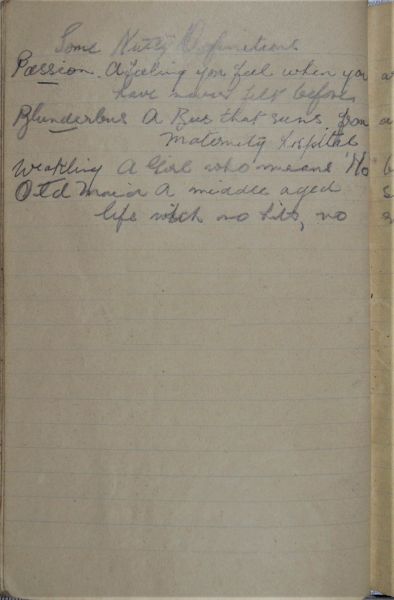 Some Nutty Definitions
Passion A feeling you feel when you
have never felt before
Blunderbus A Bus that runs from a
Maternity Hospital
Weakling A Girl who means No
Old Maid A middle aged
life with no hits, no